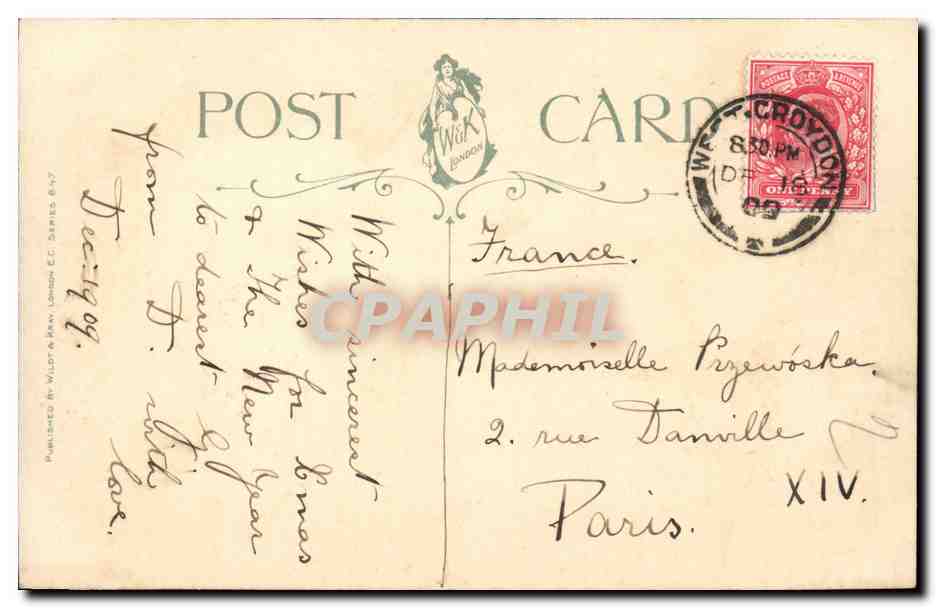 POST CARD
W&K
LONDON
POSTAGE & REVENUE
ONE PENNY
WEST·CROYDON
8.30.PM
DE 18
09
PUBLISHED BY WILDT & KRAY, LONDON E.C. SERIES 847
With sincerest
Wishes for Xmas
& The New Year
to dearest G
from D. with
love.
Dec:-1909.
France.
Mademoiselle Przewóska.
2. rue Danville
Paris.
XIV.
CPAPHIL